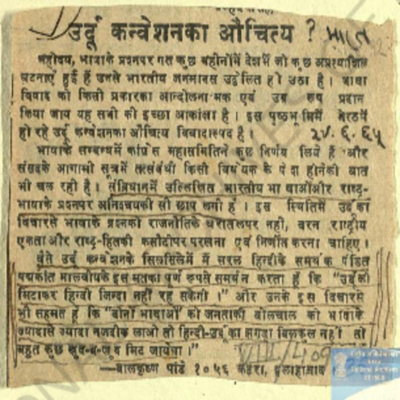 उर्दू कन्वेशनका औचित्य ? भारत
महोदय, भाषाके प्रश्नपर गत कुछ महीनोंमें देशमें जो कुछ अप्रत्याशित
घटनाएं हुई हैं उनसे भारतीय जनमानस उद्वेलित हो उठा है । भाषा
विवाद को किसी प्रकारका आन्दोलनात्मक एवं उग्र रूप प्रदान
किया जाय यह सबी की इच्छा आकांक्षा है । इस पृष्ठभूमिमें मेरठमें
हो रहे उर्दू कन्वेंशनका औचित्य विवादास्पद है । २४.६.६५
भाषाके सम्बन्धमें कांग्रेस महासमितिने कुछ निर्णय लिये हैं और
संसदके आगामी सूत्रमें तत्संबंधी किसी विधेयक के पेश होनेकी बात
भी चल रही है । संविधानमें उल्लिखित भारतीय भाषाओंऔर राष्ट्र-
भाषाके प्रश्नपर अनिश्चयकी सी छाप लगी है । इस स्थितिमें उर्दूका
विचारसे भाषाके प्रश्नको राजनीतिके धरातलपर नहीं, वरन राष्ट्रीय
एकता और राष्ट्र-हितकी कसौटीपर परखना एवं निर्णीत करना चाहिए ।
वैसे उर्दू कन्वेंशनके सिलसिलेमें में सरल हिन्दीके समर्थक पंडित
पद्मकांत मालवीयके इस मतका पूर्ण रूपसे समर्थन करता हूं कि "उर्दूको
मिटाकर हिन्दी जिन्दा नहीं रह सकेगी ।" और उनके इस विचारसे
भी सहमत हूं कि "दोनों भाषाओं को जनताकी बोलचाल की भाषाके
ज्यादासे ज्यादा नजदीक लाओ तो हिन्दी-उर्दू का झगड़ा बिलकुल नहीं तो
बहुत कुछ खुद-ब-खुद मिट जायेगा ।"
—बालकृष्ण पांडे १०५६ कटरा, इलाहाबाद